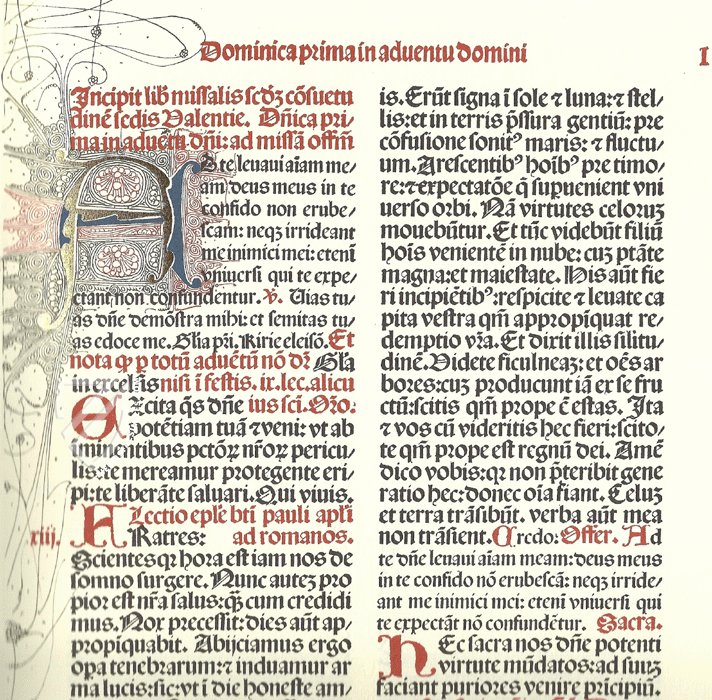 Dominica prima in aduentu domini
I
Incipit lib̃ missalis scd̃ꝫ cõsuetu
dinẽ sedis Valentie. Dñica pri/
ma in aduẽtu dñi: ad missã offm̃
AD te leuaui aĩam me/
am deus meus in te
confido non erube/
scam: neqꝫ irrideant
me inimici mei: etenĩ
vniuersi qui te expe/
ctant non confundentur. ℣. Uias tu/
as dñe demõstra mihi: et semitas tu/
as edoce me. Gl̃ia pr̃i. Kirie eleisõ. Et
nota ꝙ ꝑ totũ aduẽtũ nõ dr̃ Gl̃a
in excelsis nisi ĩ festis. ix. lec. alicu
EXcita q̃s dñe ius sc̃i. Oro.
potẽtiam tuã ⁊ veni: vt ab
ĩminentibus pctõꝝ nr̃oꝝ pericu/
lis: te mereamur protegente eri/
pi: te liberãte saluari. Qui viuis.
Lectio epl̃e bti pauli apl̃i
xiij. FRatres: ad romanos.
Scientes qꝛ hora est iam nos de
somno surgere. Nunc auteꝫ pro
pior est nr̃a salus: qꝫ̃ cum credidi
mus. Nox precessit: dies aũt ap/
propiquabit. Abijciamus ergo
oꝑa tenebrarum: ⁊ induamur ar
ma lucis: sic: vt ĩ die honeste am/
is. Erũt signa ĩ sole ⁊ luna: ⁊ stel/
lis: et in terris p̃ssura gentiũ: pre
cõfusione sonitꝰ maris: ⁊ fluctu/
um. Arescentibꝰ hoĩbꝰ pre timo/
re: ⁊ expectatõe q̃ supuenient vni
uerso orbi. Nã virtutes celoruꝫ
mouebũtur. Et tũc videbũt filiũ
hoĩs venientẽ in nube: cuꝫ ptãte
magna: et maiestate. His aũt fie
ri incipiẽtibꝰ: respicite ⁊ leuate ca
pita vestra qm̃ appropĩquat re/
demptio vr̃a. Et dixit illis silitu/
dinẽ. Videte ficulneaꝫ: et oẽs ar
bores: cuꝫ producunt iã ex se fru
ctũ: scitis qm̃ prope ẽ estas. Ita
⁊ vos cũ videritis hec fieri: scito/
te qm̃ prope est regnũ dei. Amẽ
dico vobis: qꝛ non p̃teribit gene
ratio hec: donec oĩa fiant. Celuꝫ
et terra trãsibũt. verba aũt mea
non trãsient. Credo: Offer. Ad
te dñe leuaui aĩam meam: deus meus
in te confido nõ erubescã: neqꝫ irride/
ant me inimici mei: etenĩ vniuersi qui
te expectãt nõ confundẽtur. Sacra.
HEc sacra nos dñe potenti
virtute mũdatos: ad suuꝫ
faciant puriores venire pricipiũ.